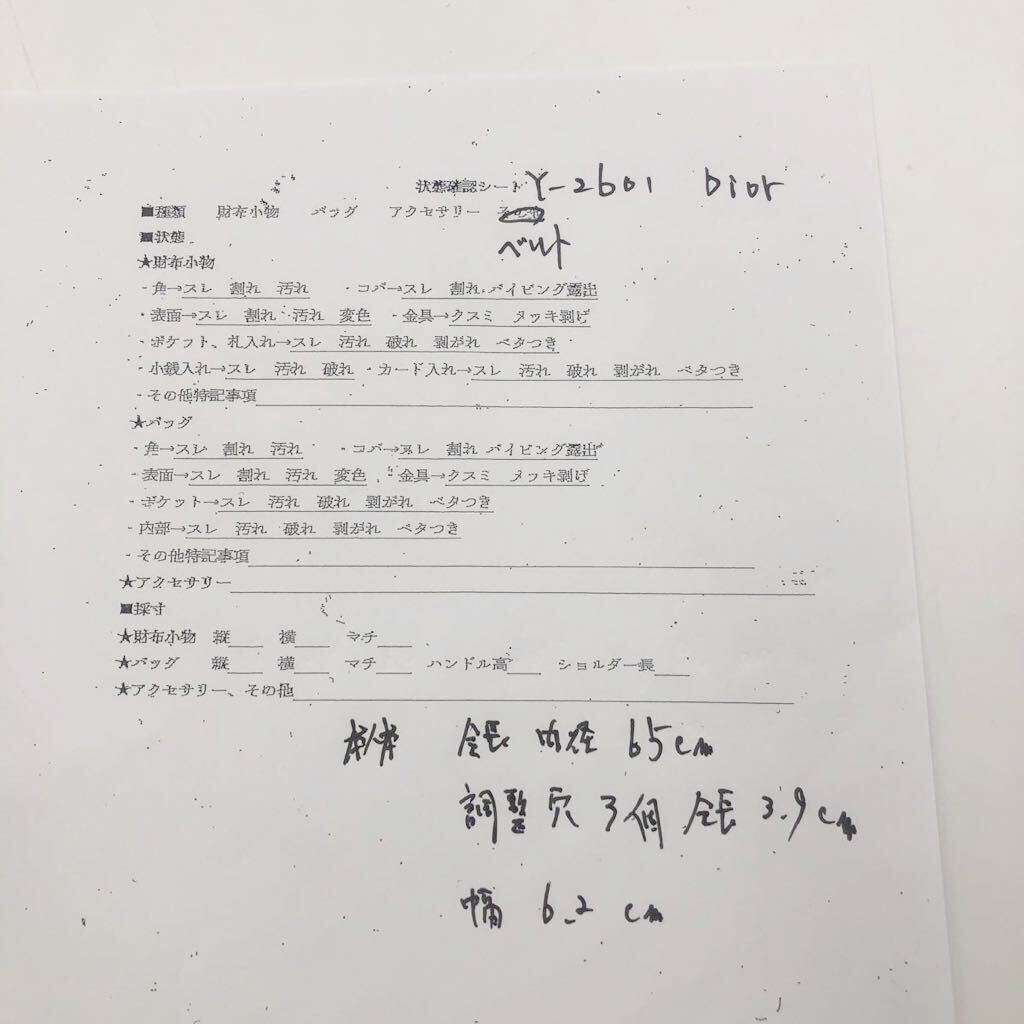 状態確認シート Y-2601 Dior
■種類 財布小物 バッグ アクセサリー その他
ベルト
■状態
★財布小物
・角→スレ 割れ 汚れ ・コバ→スレ 割れ パイピング露出
・表面→スレ 割れ 汚れ 変色 ・金具→クスミ メッキ剥げ
・ポケット、札入れ→スレ 汚れ 破れ 剥がれ ベタつき
・小銭入れ→スレ 汚れ 破れ ・カード入れ→スレ 汚れ 破れ 剥がれ ベタつき
・その他特記事項
★バッグ
・角→スレ 割れ 汚れ ・コバ→スレ 割れ パイピング露出
・表面→スレ 割れ 汚れ 変色 ・金具→クスミ メッキ剥げ
・ポケット→スレ 汚れ 破れ 剥がれ ベタつき
・内部→スレ 汚れ 破れ 剥がれ ベタつき
・その他特記事項
★アクセサリー
■採寸
★財布小物 縦 横 マチ
★バッグ 縦 横 マチ ハンドル高 ショルダー長
★アクセサリー、その他
全長 内径 65cm
調整穴 3個 全長 3.9cm
幅 6.2cm